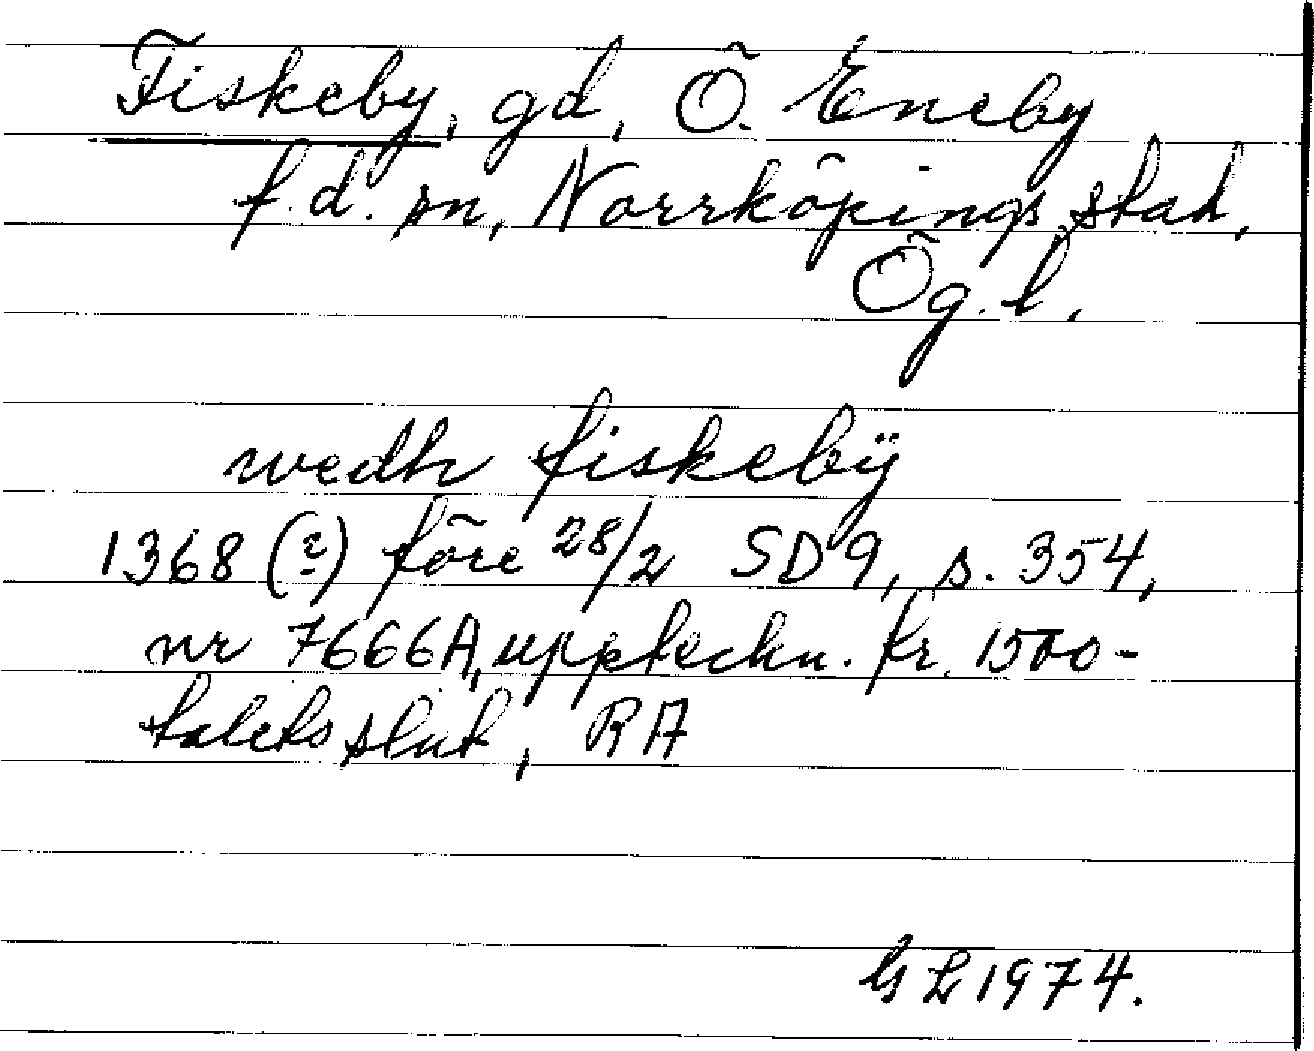 Fiskeby, gd, Ö. Eneby
f.d. sn, Norrköpings stad,
Ög. l.
wedh fiskebÿ
1368 (?) före 28/2 SD 9, s. 354,
nr 7666A, uppteckn. fr. 1500-
talets slut, RA
GL 1974.